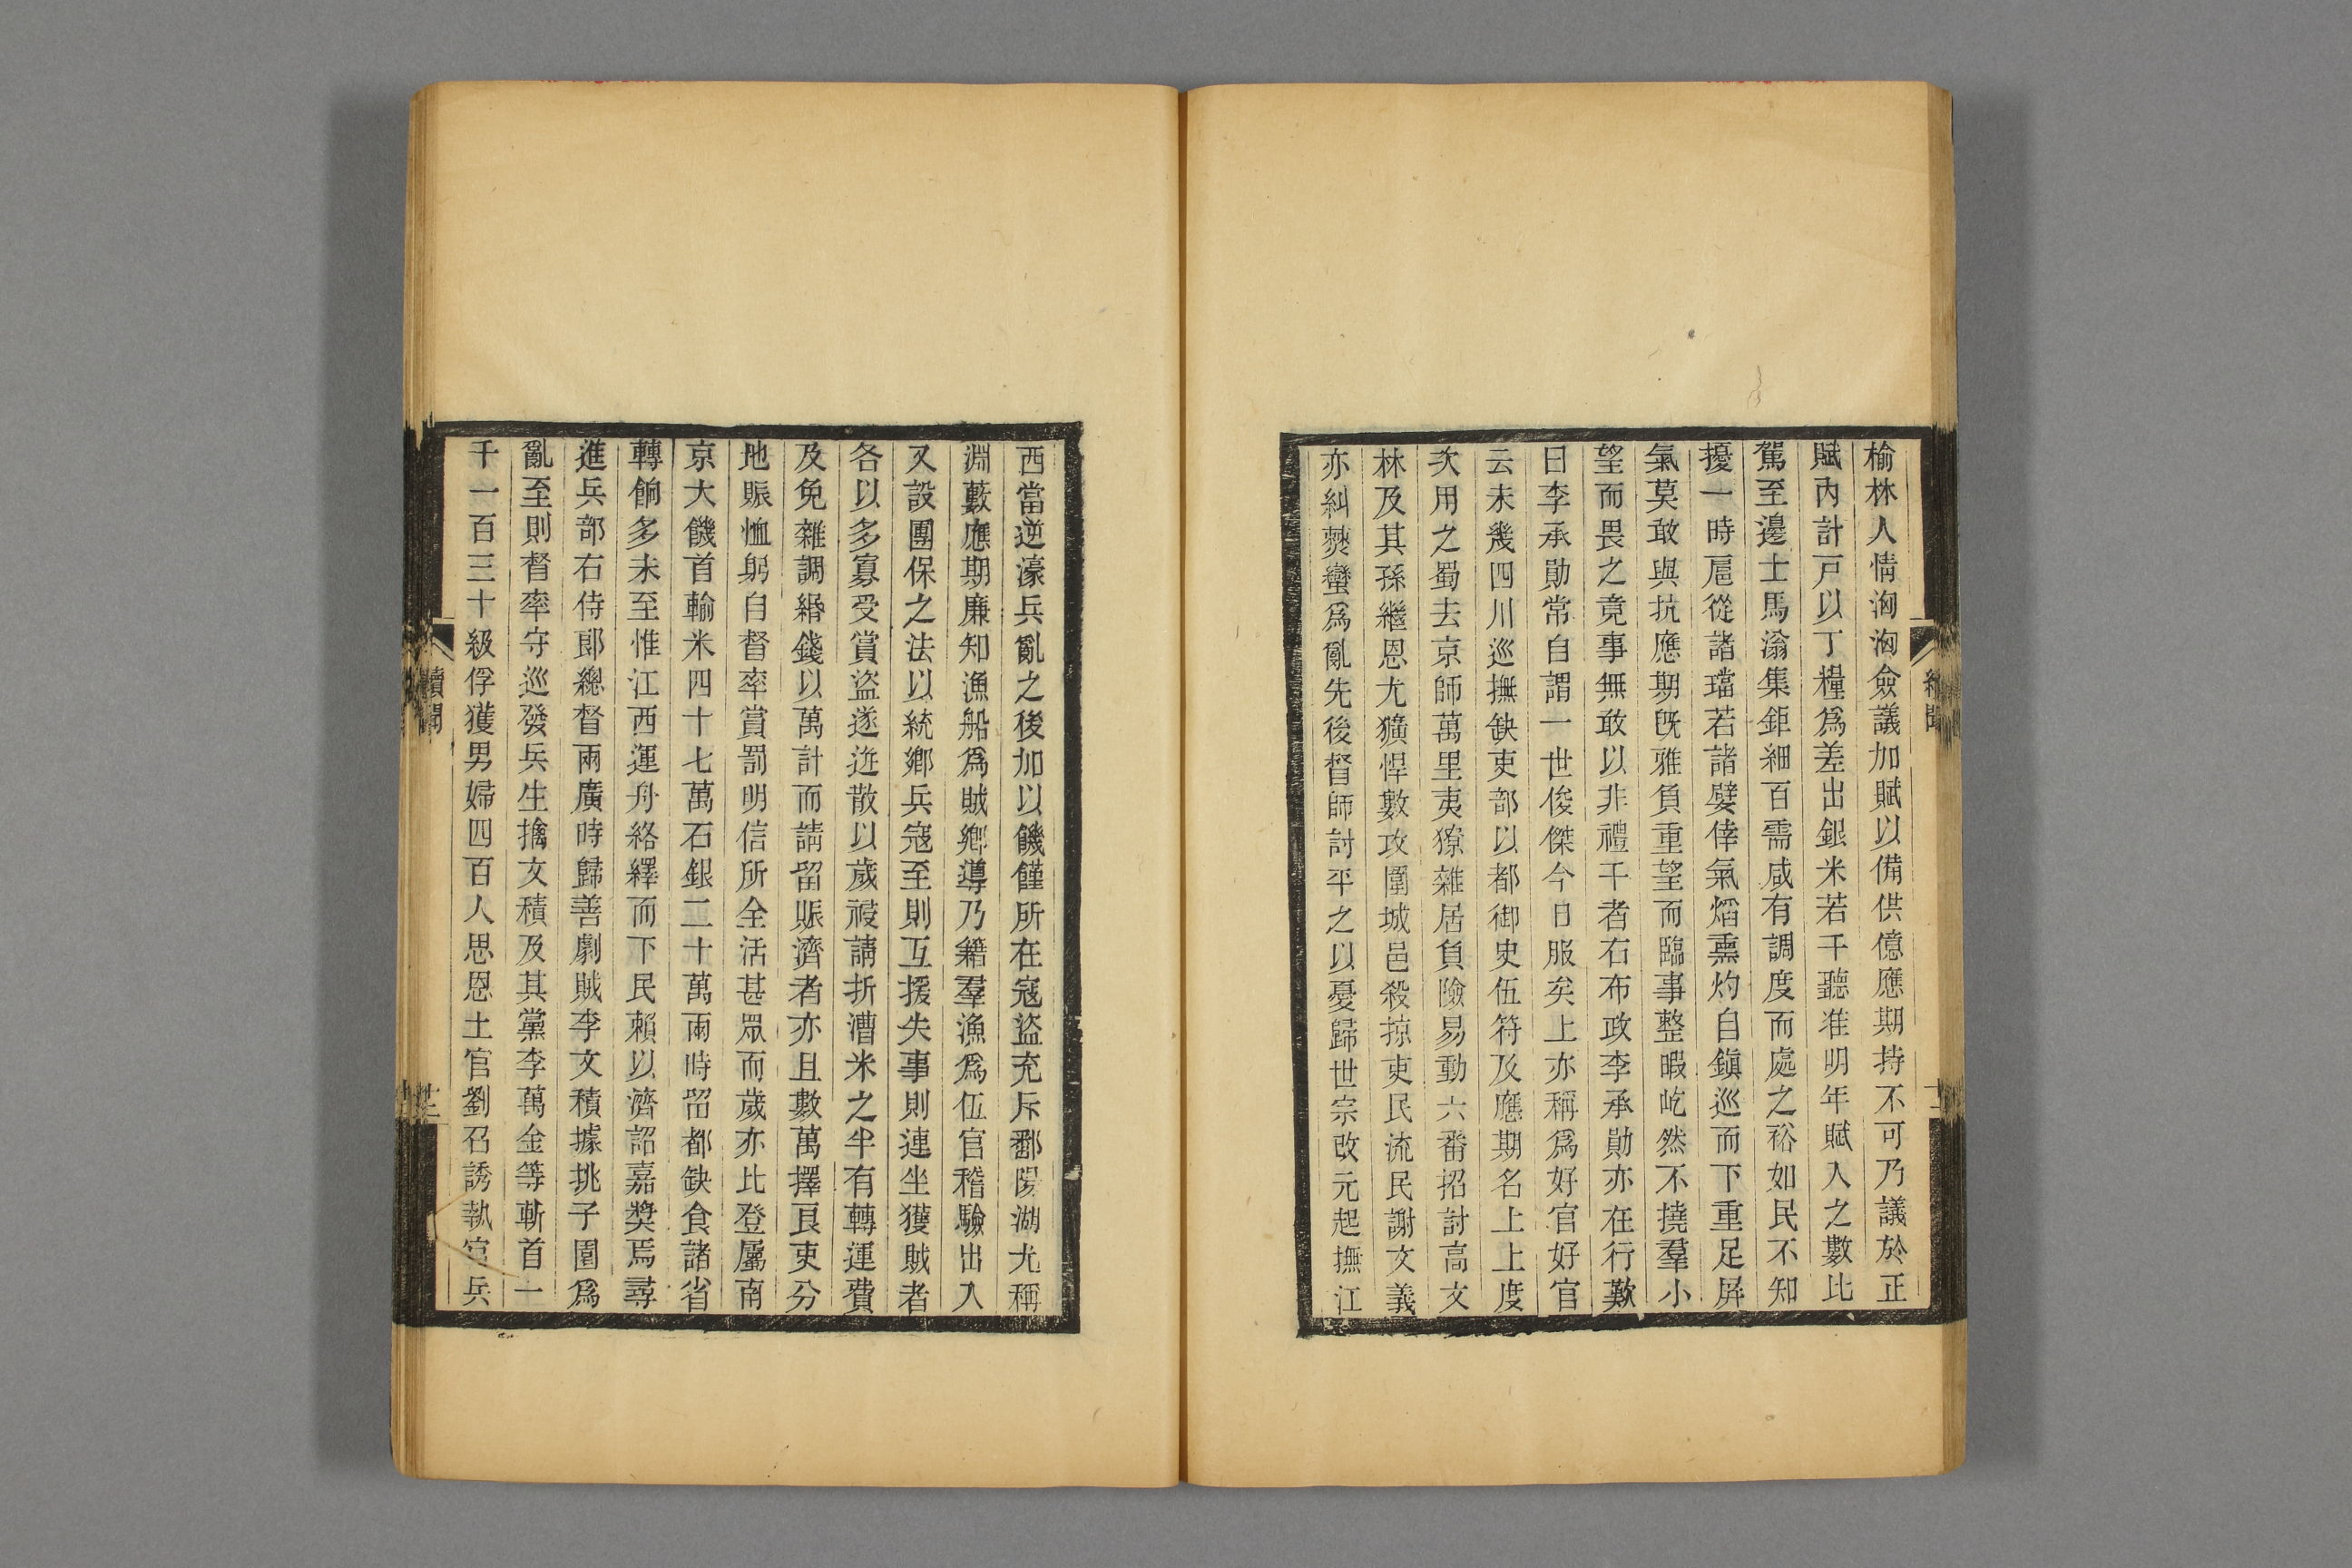 榆林人情洶洶僉議加賦以備供億應期持不可乃議於正
賦內計戸以丁糧爲差出銀米若干聽准明年賦入之數比
駕至邊士馬滃集鉅細百需咸有調度而處之裕如民不知
擾一時扈從諸璫若諸嬖倖氣熖熏灼自鎭巡而下重足屏
氣莫敢與抗應期旣雅負重望而臨事整暇屹然不撓羣小
望而畏之竟事無敢以非禮干者右布政李承勛亦在行歎
曰李承勛常自謂一世俊傑今日服矣上亦稱爲好官好官
云未幾四川巡撫缺吏部以都御史伍符及應期名上上度
次用之蜀去京師萬里夷獠雜居負險易動六番招討高文
林及其孫繼恩尤獷悍數攻圍城邑殺掠吏民流民謝文義
亦糾僰蠻爲亂先後督師討平之以憂歸世宗改元起撫江
西當逆濠兵亂之後加以饑饉所在寇盜充斥鄱陽湖尤稱
淵藪應期廉知漁船爲賊鄉導乃籍羣漁爲伍官稽驗出入
又設團保之法以統鄉兵寇至則互援失事則連坐獲賊者
各以多寡受賞盜遂迸散以歲祲請折漕米之半有轉運費
及免雜調緡錢以萬計而請留賑濟者亦且數萬擇良吏分
地賑恤躬自督率賞罰明信所全活甚眾而歲亦比登屬南
京大饑首輸米四十七萬石銀二十萬兩時留都缺食諸省
轉餉多未至惟江西運舟絡繹而下民賴以濟詔嘉奬焉尋
進兵部右侍郞總督兩廣時歸善劇賊李文積據挑子圍爲
亂至則督率守巡發兵生擒文積及其黨李萬金等斬首一
千一百三十級俘獲男婦四百人思恩土官劉召誘執官兵
續聞